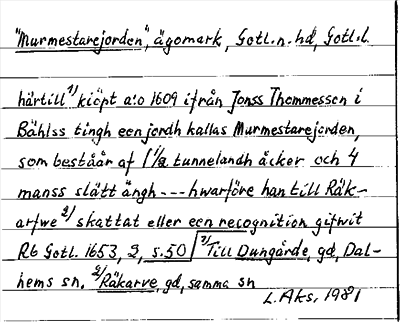 "Murmestarejorden", ägomark, Gotl. n. hd, Gotl. l.
härtill 1) kiöpt a:o 1609 ifrån Jonss Thommessen i
Bählss tingh een jordh kallas Murmestarejorden,
som beståår af 1 1/2 tunnelandh åcker och 4
manss slätt ängh --- hwarföre han till Räk-
arfwe 2) skattat eller een recognition gifwit
Rb Gotl. 1653, 2, s. 50 1) Till Dungårde, gd, Dal-
hems sn, 2) Räkarve, gd, samma sn
L. Aks, 1981